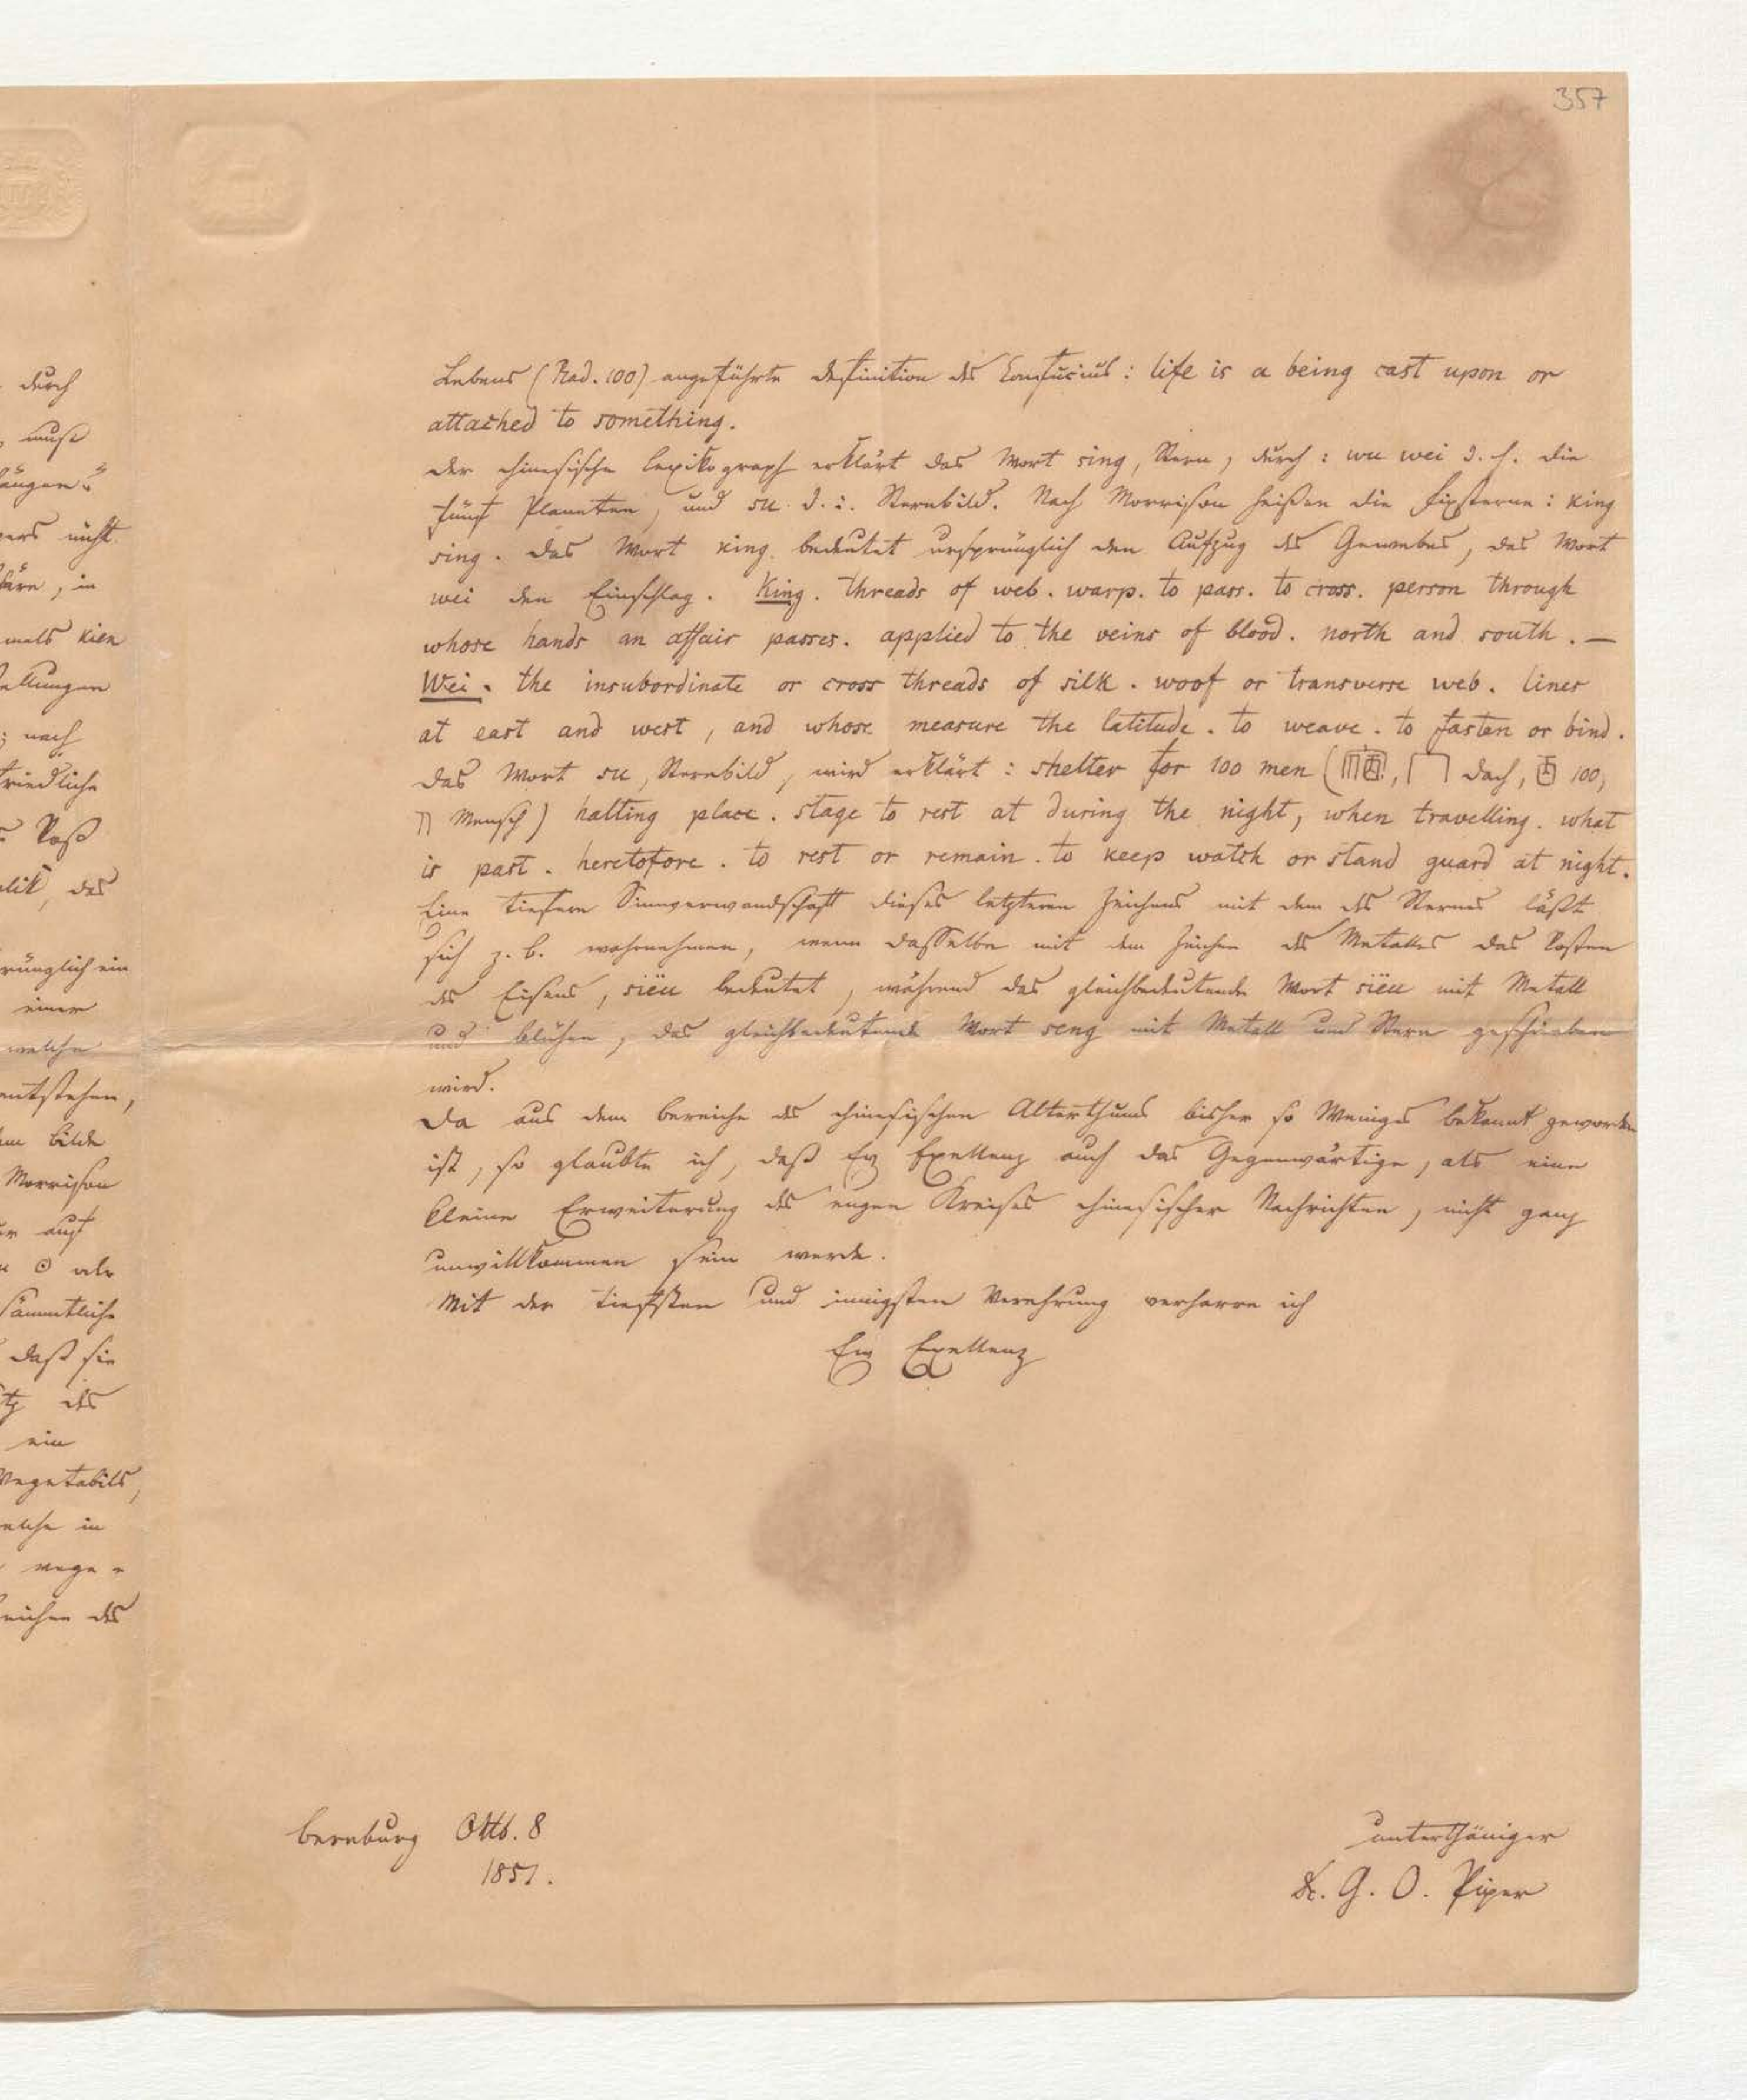 357
durch
muß
nicht
in
mals kien
nach
friedliche
Roß
das
ein
einer
welche
entstehen,
Bilde
Morrison
auf
⊙ als
sämmtliche
daß sie
des
ein
Vegetabils,
welche in
des
Lebens (Rad. 100) angeführte Definition des Confucius: life is a being cast upon or
attached to something.
Der chinesische Lexikograph erklärt das Wort sing, Stern, durch: wu wei d. h. die
fünf Planeten, und su. d. i. Sternbild. Nach Morrison heißen die Fixsterne: king
sing. Das Wort king bedeutet ursprünglich den Aufzug des Gewebes, das Wort
wei den Einschlag. King. threads of web. warp. to pass. to cross. person through
whose hands an affair passes. applied to the veins of blood. north and south. —
Wei. the insubordinate or cross threads of silk. woof or transverse web. lines
at east and west, and whose measure the latitude. to weave. to fasten or bind.
Das Wort su, Sternbild, wird erklärt: shelter for 100 men ( Dach, 100,
Mensch) halting place. stage to rest at during the night, when travelling. what
is past. heretofore. to rest or remain. to keep watch or stand guard at night.
Eine tiefere Sinnverwandschaft dieses letzteren Zeichens mit dem des Sternes läßt
sich z. B. wahrnehmen, wenn dasselbe mit dem Zeichen des Metalles das Rosten
des Eisens, siëu bedeutet, während das gleichbedeutende Wort siëu mit Metall
und blühen, das gleichbedeutende Wort seng mit Metall und Stern geschrieben
wird.
Da aus dem Bereiche des chinesischen Alterthums bisher so Weniges bekannt geworden
ist, so glaubte ich, daß Ew Exellenz auch das Gegenwärtige, als eine
kleine Erweiterung des engen Kreises chinesischer Nachrichten, nicht ganz
unwillkommen sein werde.
Mit der tiefsten und innigsten Verehrung verharre ich
Ew Exellenz
unterthäniger
Bernburg Oktb. 8
1851.
Dr. G. O. Piper